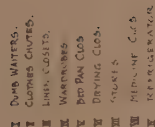 I DUMB WAITERS.
II CLOTHES CHUTES.
III LINEN CLOSETS.
IV WARDROBES
V BED PAN CLOS
VI DRYING CLOS.
VII STORES
VIII MEDICINE
IX REFRIGERATOR